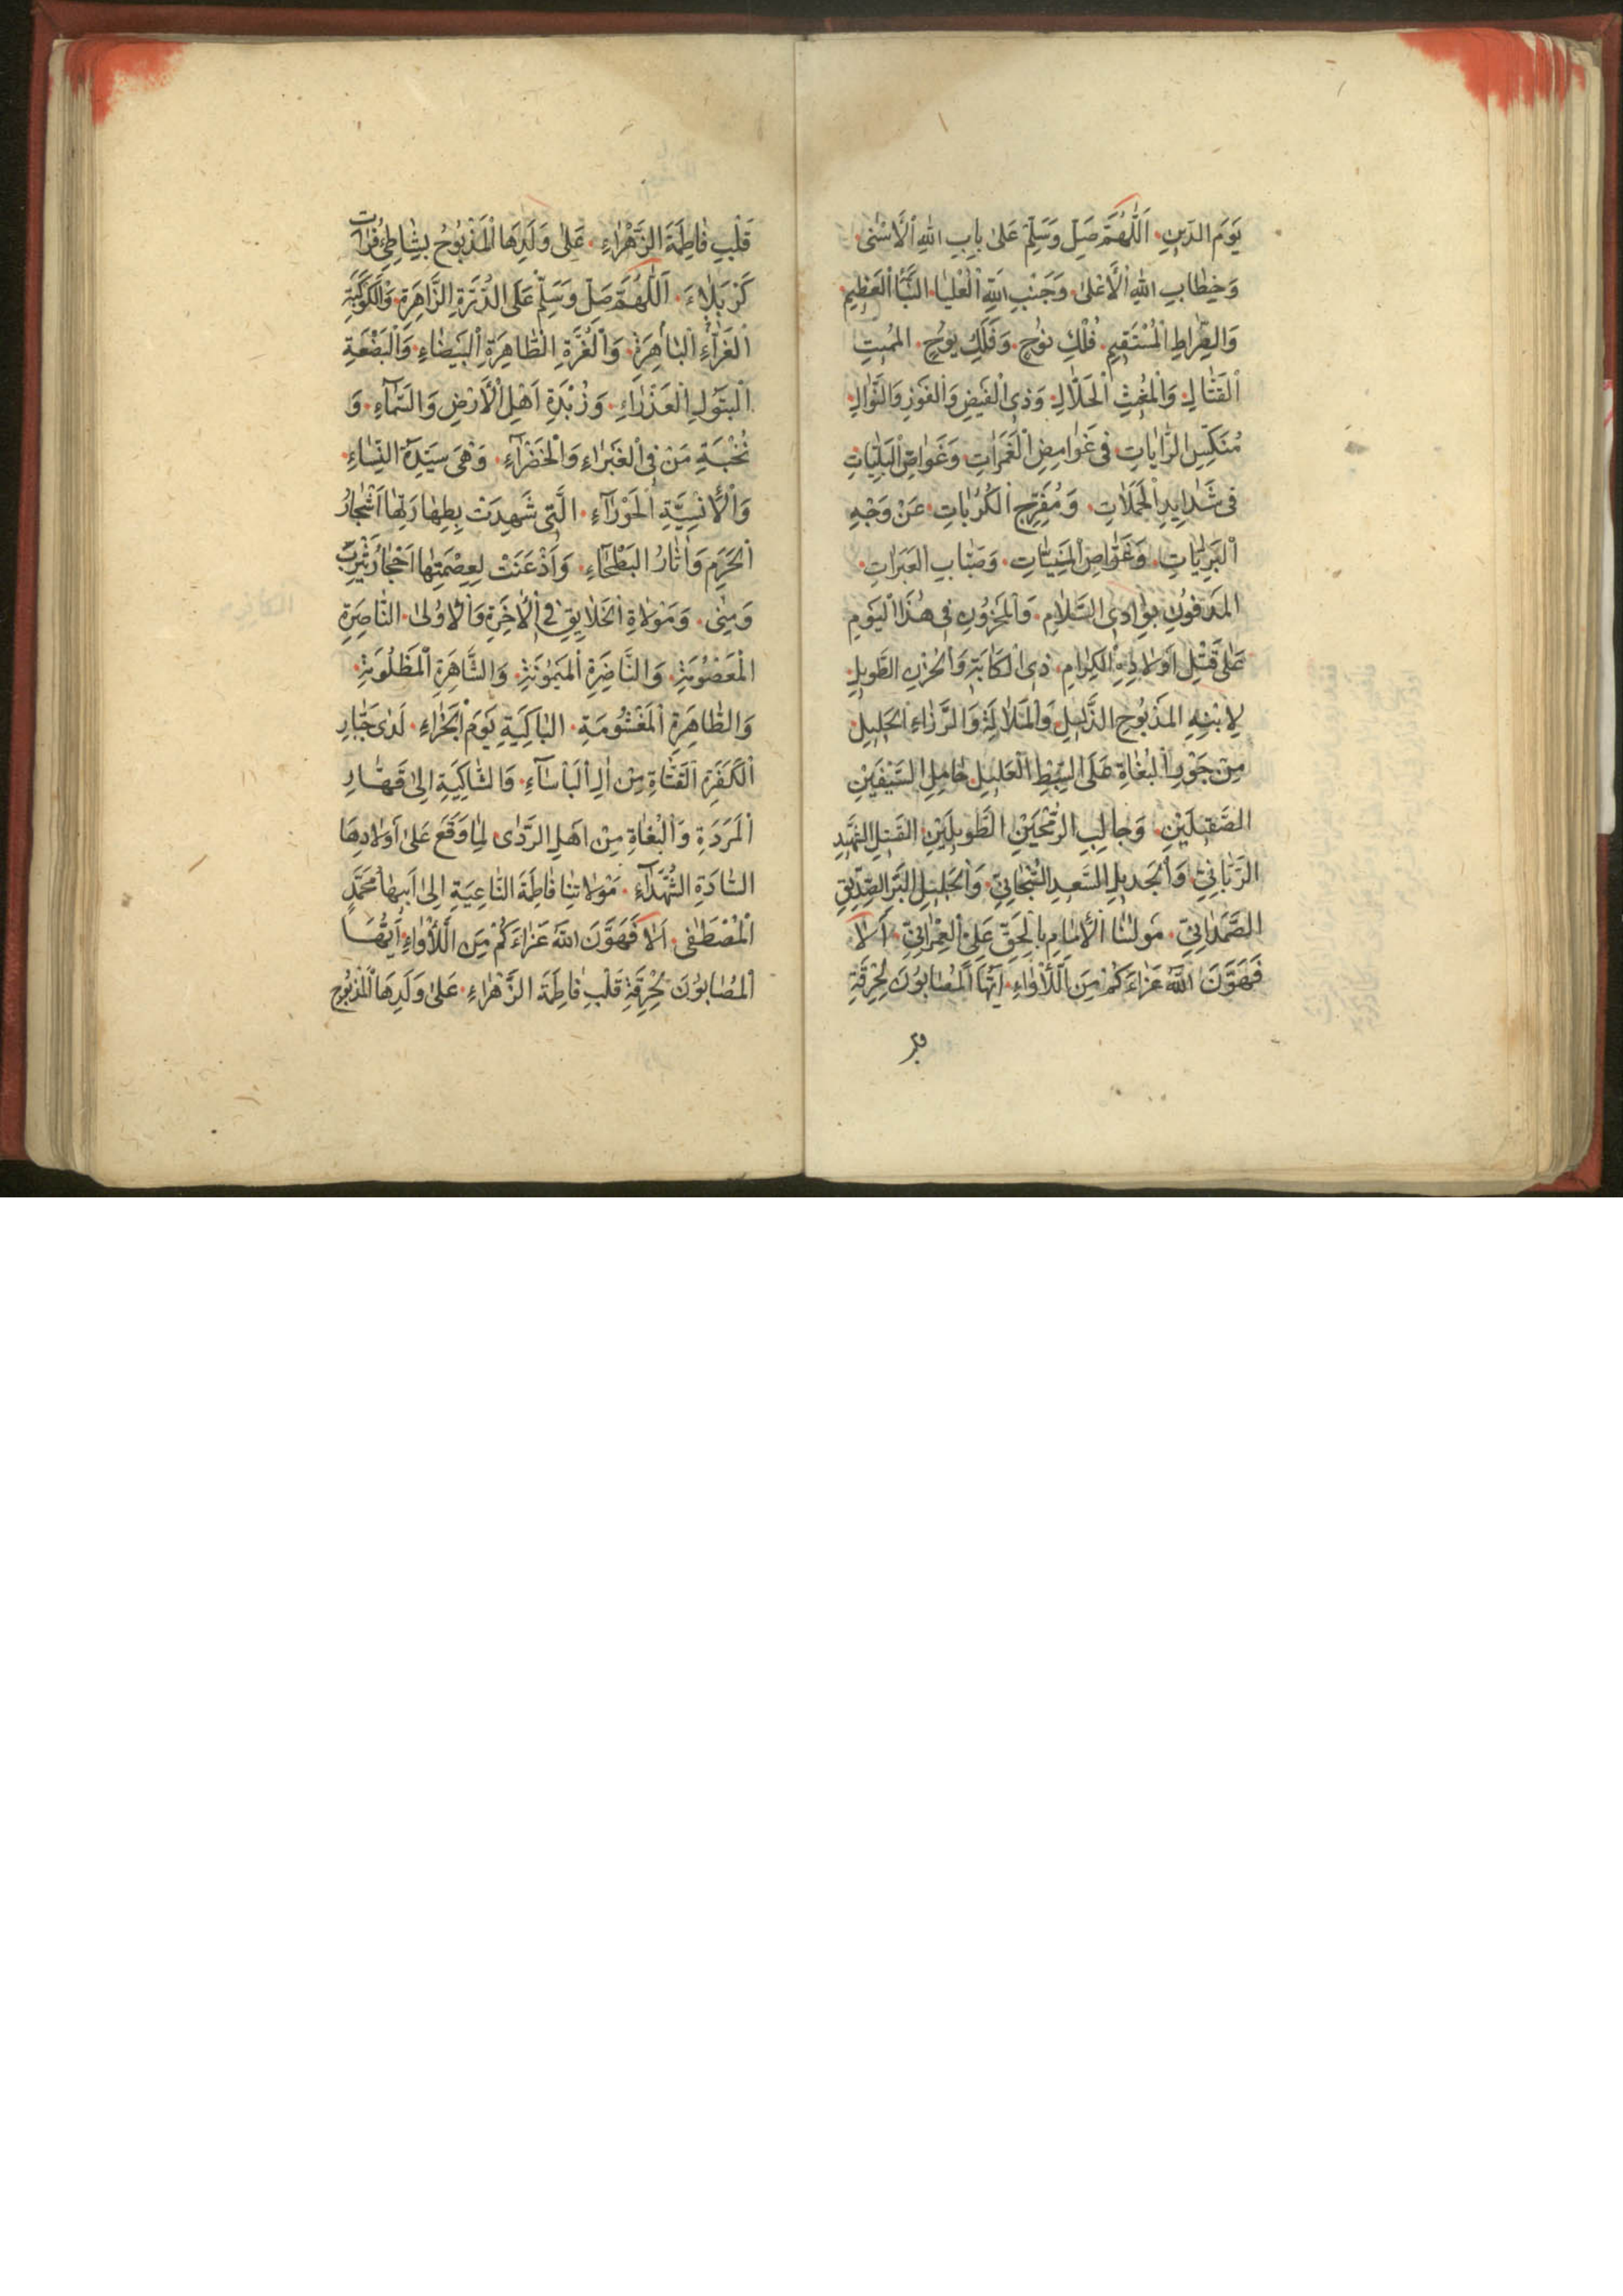 يَوْمَ الدّينِ. اَللّٰهُمَّ صَلِّ وَسَلِّمْ عَلىٰ بابِ اللهِ الْاَسْنىٰ.
وَخِطابِ اللهِ الْاَعْلىٰ. وَجَنْبِ اللهِ الْعُلْيا. النَّبَأِ الْعَظيمِ
وَالصِّراطِ الْمُسْتَقيمِ. فُلْكِ نُوُحٍ. وَفَلَكِ يُوحٍ. المُميتِ
الْقَتّالِ. وَالْمُغيثِ الْحَلّالِ. وَذِى الْفَيْضِ وَالْفَوْزِ وَالنَّوالِ.
مُنَكِّسِ الرّاياتِ فى غَوامِضِ الْغَمَراتِ. وَغَواصِّ الْبَلِيّاتِ
فى شَدايِدِ الْحَمَلاتِ. وَمُفَرِّجِ الْكُرُباتِ. عَنْ وَجْهِ
الْبَرِيّاتِ. وَغَوّاصِ الْمَنِيّاتِ. وَصَبّابِ الْعَبَراتِ.
الْمَدْفُونِ بِوادِى السَّلامِ. وَالْمَحْزُونِ فى هٰذَا الْيَوْمِ
عَلىٰ قَتْلِ اَوْلادِهِ الْكِرامِ. ذِى الْكَابَةِ وَالْحُزْنِ الطَّويلِ.
لِابْنِهِ الْمَذْبُوحِ الذَّليلِ. وَالْمَلالَةِ وَالرَّزاءِ الْجَليلِ.
مِنْ جَوْرِ الْبُغاةِ عَلَى السِّبْطِ الْعَليلِ. حامِلِ السَّيْفَيْنِ
الصَّقيلَيْنِ. وَجالِبِ الرُّمْحَيْنِ الطَّويلَيْنِ. القَتيلِ الشَّهيدِ
الرَّبّانِيِّ. وَالْجَديلِ السَّعيدِ السُّبْحانِيِّ. وَالْجَليلِ الْبَرِّ الصِّدّيقِ
الصَّمَدانِيِّ. مَوْلٰنَا الْاِمامِ بِالْحَقِّ عَلِيٍّ الْعِمْرانِيِّ. اَلا
فَهَوَّنَ اللهُ عَزاءَكُمْ مِنَ اللَّأْواءِ. اَيُّهَا الْمُصابُونَ بِحُرْقَةِ
قَلْبِ فاطِمَةَ الزَّهْراءِ. عَلىٰ وَلَدِهَا الْمَذْبُوُحِ بِشاطِئِ فُراتِ
كَرْبَلاءَ. اَللّٰهُمَّ صَلِّ وَسَلِّمْ عَلَى الدُّرَّةِ الزّاهِرَةِ. وَالْكَوْكَبَةِ
الْغَرّاءِ الْباهِرَةِ. وَالْغُرَّةِ الطّاهِرَةِ الْبَيْضاءِ. وَالْبَضْعَةِ
الْبَتُولِ الْعَذْراءِ. وَزُبْدَةِ اَهْلِ الْاَرْضِ وَالسَّمآءِ. وَ
نُخْبَةِ مَنْ فِى الْغَبْراءِ وَالْخَضْرآءِ. وَهْىَ سَيِّدَةُ النِّساءِ.
وَالْاِنْسِيَّةِ الْحَوْرآءِ. الَّتى شَهِدَتْ بِطَهارَتِها اَشْجارُ
الْحَرَمِ وَاٰثارُ الْبَطْحاءِ. وَاَذْعَنَتْ لِعِصْمَتِها اَحْجارُ يَثْرِبَ
وَمِنىٰ. وَمَوْلاةِ الْخَلايِقِ فِى الْاٰخِرَةِ وَالْاُولىٰ. النّاصِرَةِ
الْمَعْصُومَةِ. وَالنّاضِرَةِ الْمَيْمُونَةِ. وَالشّاهِرَةِ الْمَظْلُومَةِ.
وَالطّاهِرَةِ الْمَغْشُومَةِ. الْباكِيَةِ يَوْمَ الْجَزاءِ. لَدىٰ جَبّارِ
الْكَفَرَةِ الْقُتّاةِ مِنْ اٰلِ الْبَأْساءِ. وَالشّاكِيَةِ اِلىٰ قَهّارِ
الْمَرَدَةِ وَالْبُغاةِ مِنْ اَهْلِ الرَّدىٰ. لِما وَقَعَ عَلىٰ اَوْلادِهَا
السّادَةِ الشُّهَدآءِ. مَوْلاتِنا فاطِمَةَ النّاعِيَةِ اِلىٰ اَبيها مُحَمَّدٍ
الْمُصْطَفىٰ. اَلا فَهَوَّنَ اللهُ عَزاءَكُمْ مِنَ اللَّأْواءِ. اَيُّهَا
الْمُصابُونَ بِحُرْقَةِ قَلْبِ فاطِمَةَ الزَّهْراءِ. عَلىٰ وَلَدِهَا الْمَذْبُوُحِ